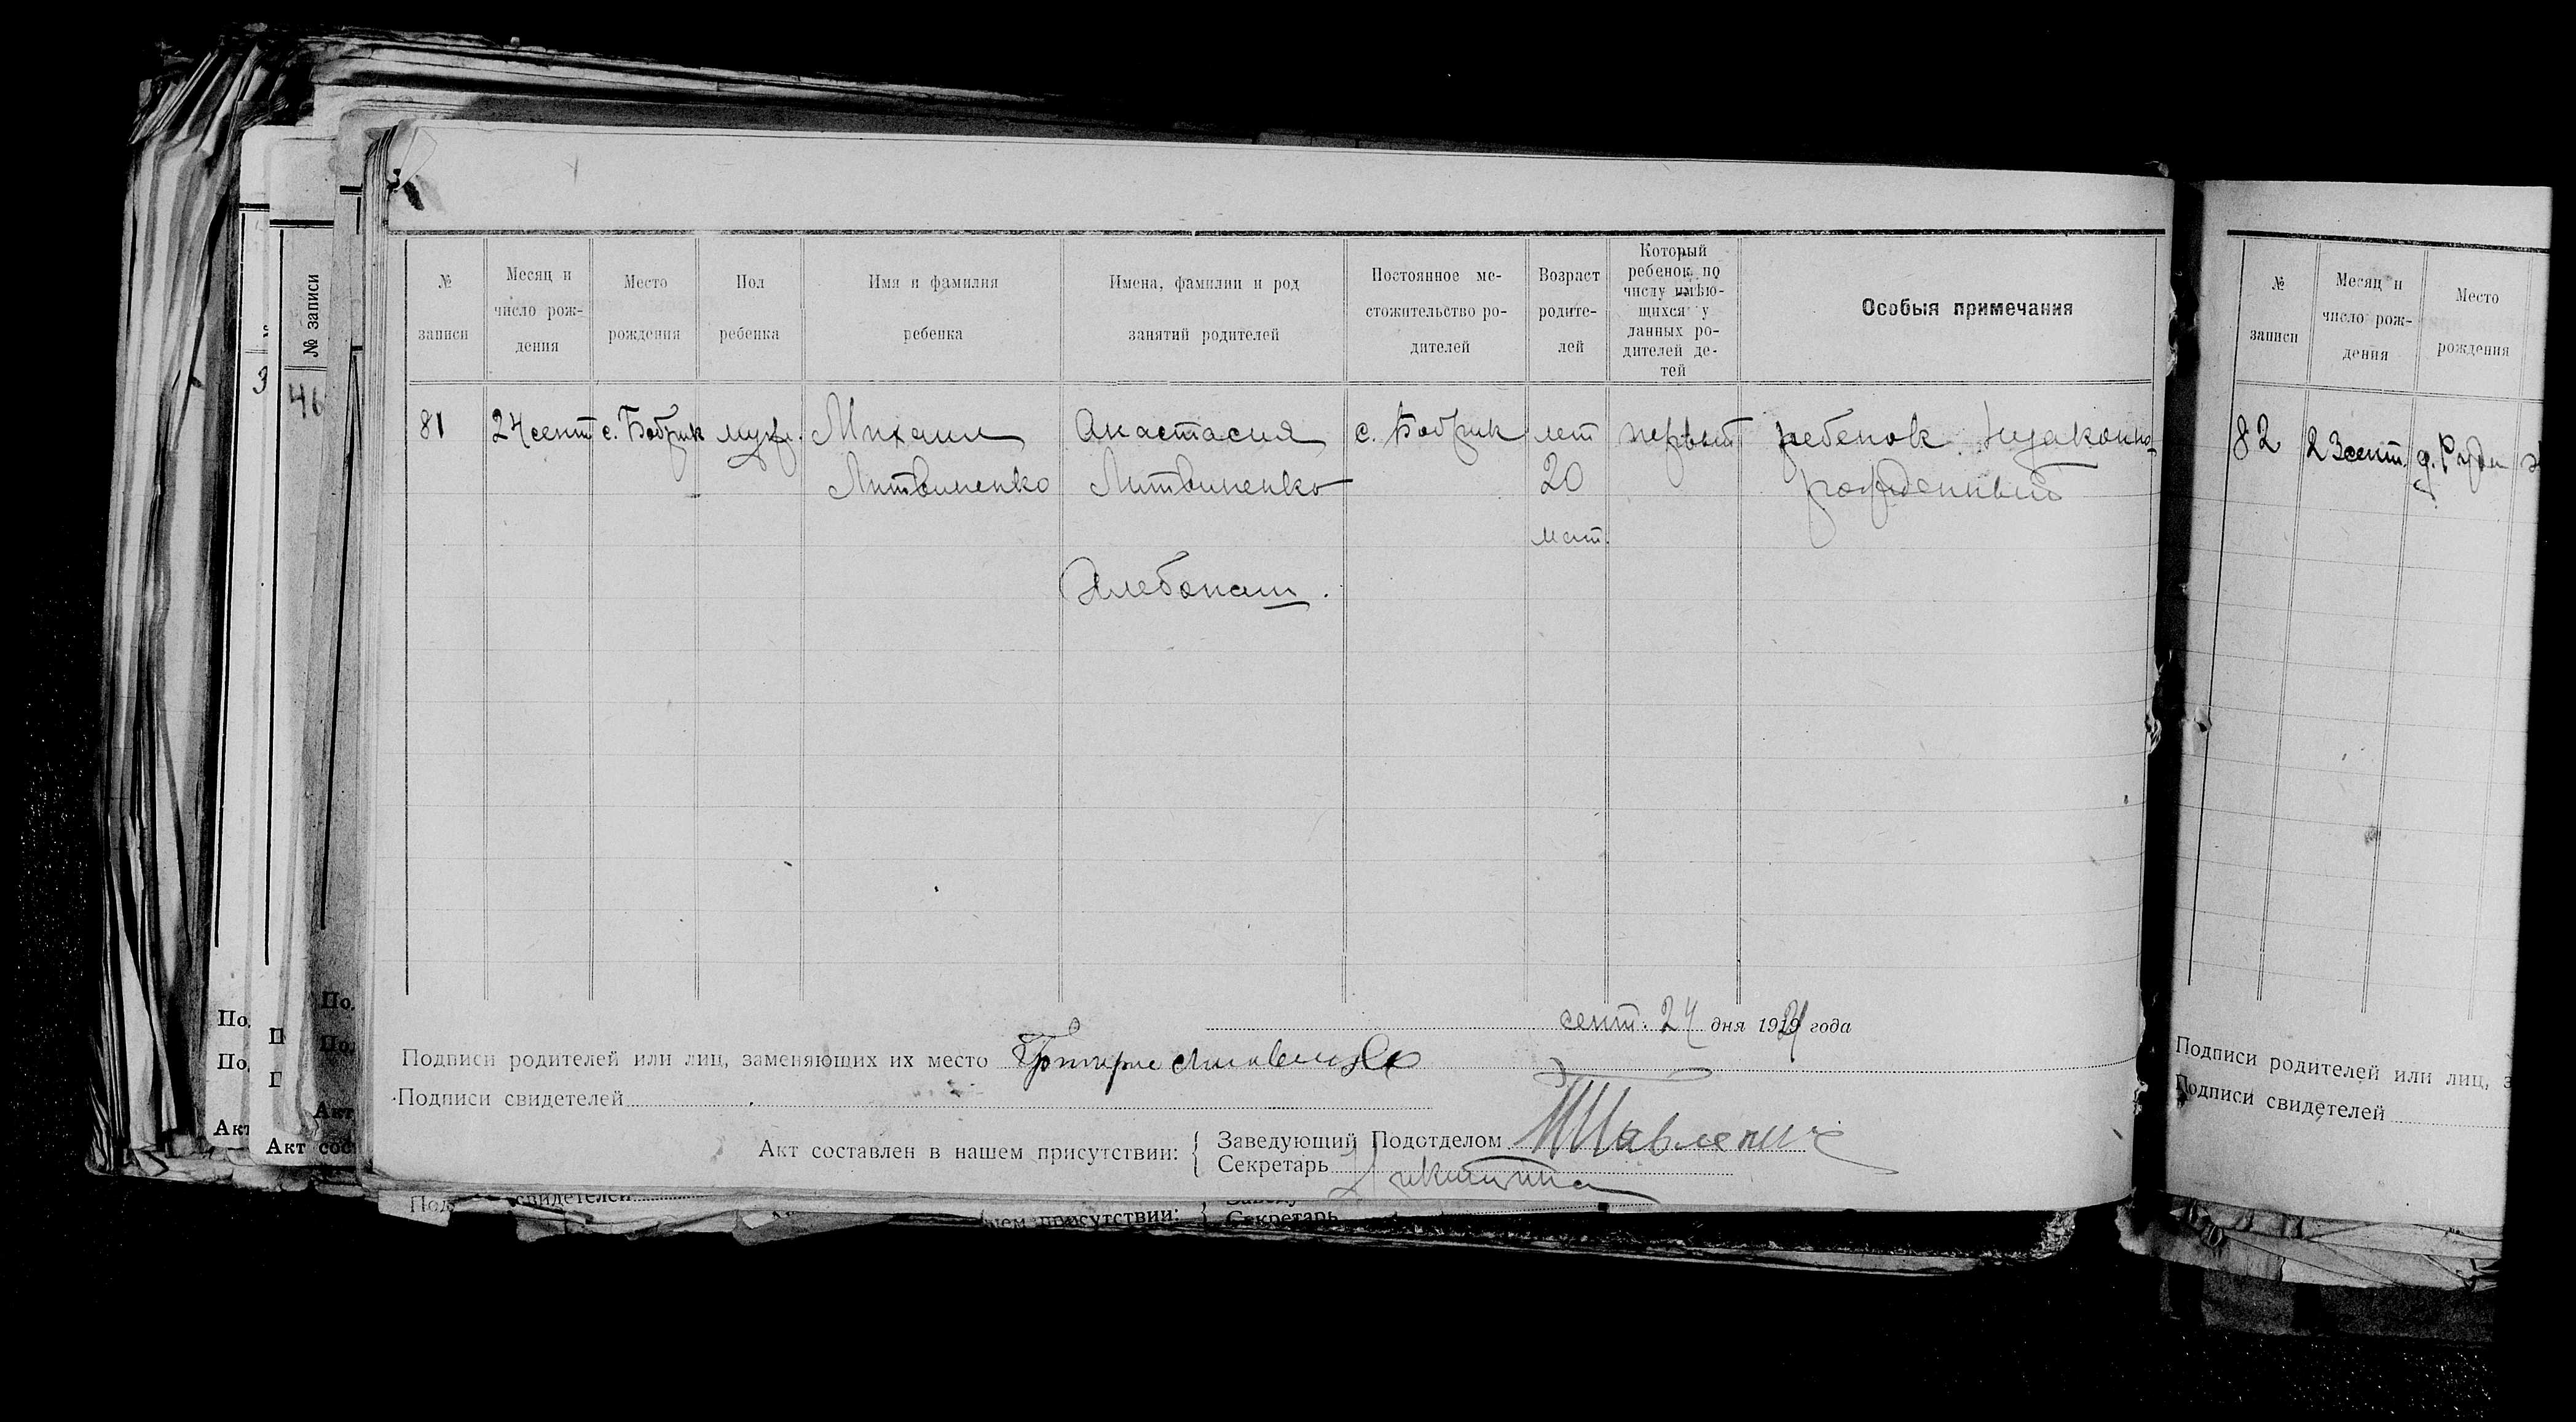 № записи
Месяц и число рождения
Место рождения
Пол ребенка
Имя и фамилия ребенка
Имена, фамилии и род занятий родителей
Постоянное местожительство родителей
Возраст родителей
Который ребенок по числу имѣющихся у данных родителей детей
Особыя примечания
81 24 сент с. Бобрик муж. Михаил Анастасия с. Бобрик лет первый ребенок незаконно-
Литвиненко Литвиненко 20 рожденный
мат.
Хлебопаш.
сент. 24 дня 1921 года
Подписи родителей или лиц, заменяющих их место
Подписи свидетелей
Акт составлен в нашем присутствии:
Заведующий Подотделом
Секретарь Никитина
№ записи
Месяц и число рождения
Место рождения
82 23 сент. д. Рудн
Подписи родителей или лиц, з
Подписи свидетелей
№ записи
46
Акт сос
свидетелей
нем присутствии:
Секретарь